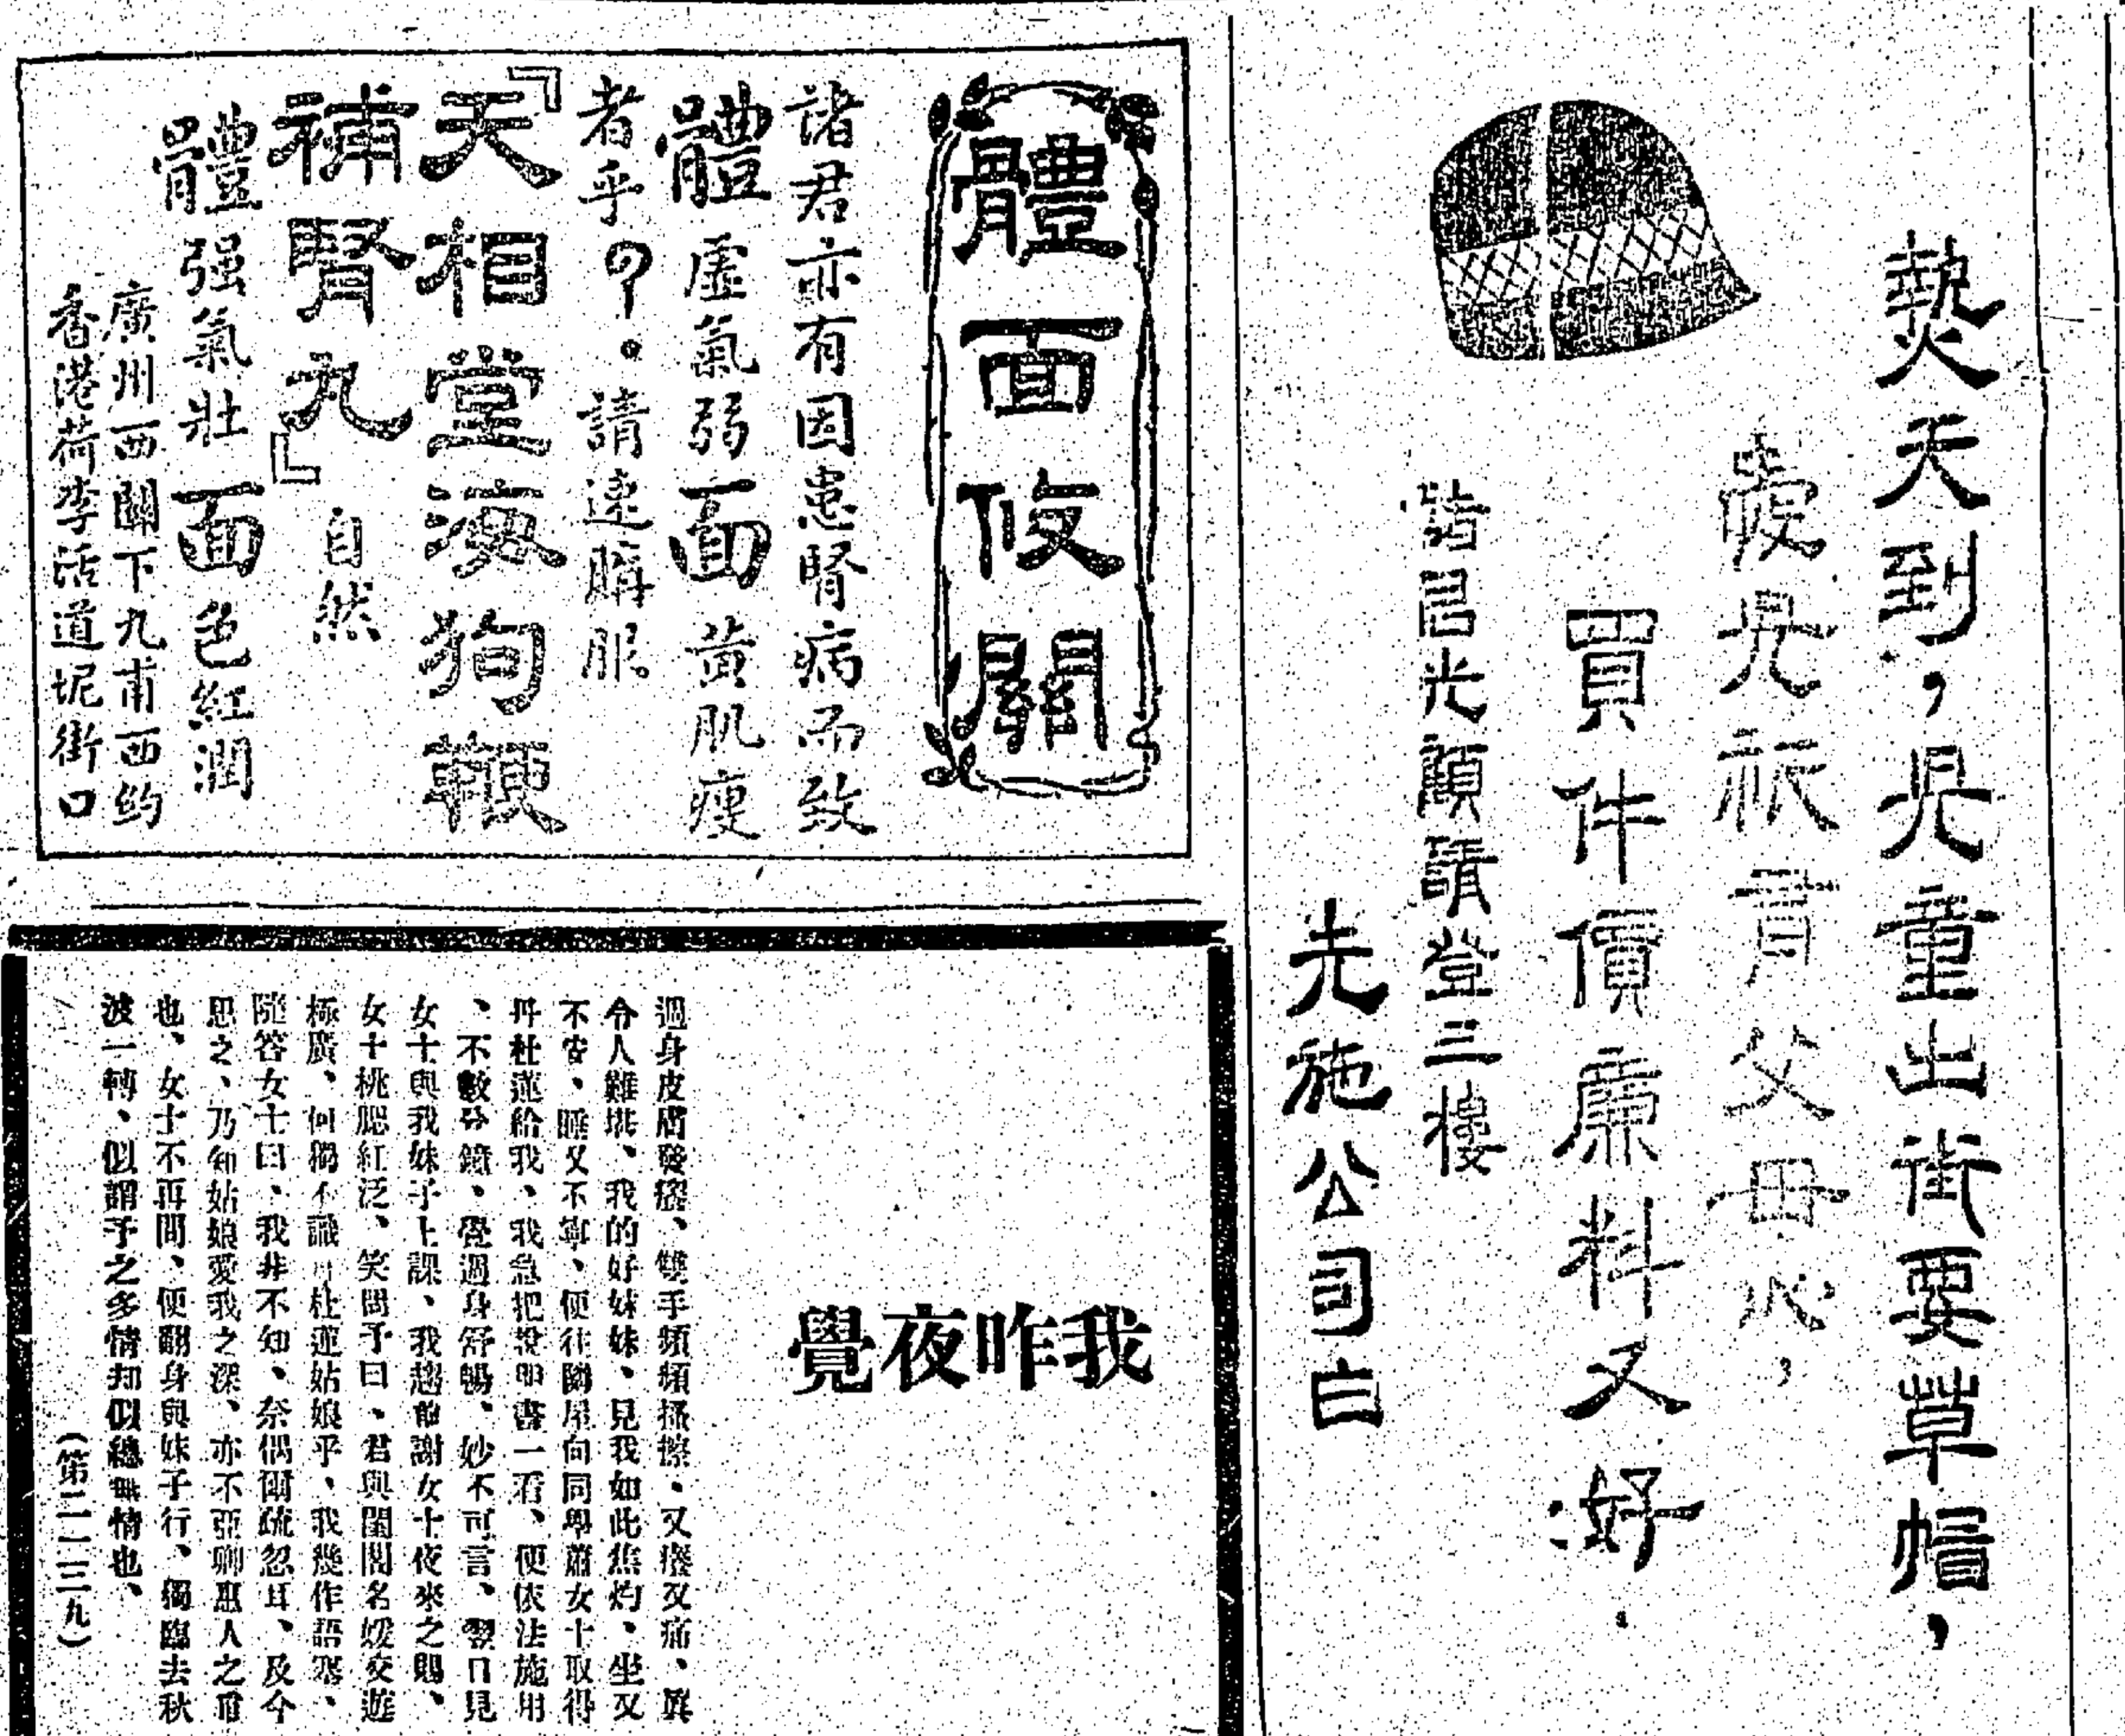 熱天到，兒童出街要草帽，
兒祇育父母心，
買件價廉料又好．
光顧請登三樓
先施公司白
體面攸關
諸君亦有因患腎病而致
體虛氣弱面黃肌瘦
者乎？。請速購服
『天相堂海狗鞭
補腎丸』自然
體强氣壯面色紅潤
廣州西關下九甫西約
香港荷李活道坭街口
我昨夜覺
週身皮膚發癮、雙手頻頻搔擦、又癢又痛、眞
令人難堪、我的好妹妹、見我如此焦灼、坐又
不安、睡又不寧、便往隣屋向同學蕭女士取得
丹杜蓮給我、我急把說明書一看、便依法施用
、不數分鐘、覺週身舒暢、妙不可言、翌日見
女士與我妹子上課、我趨前謝女士夜來之賜、
女士桃腮紅泛、笑問予曰、君與閨閣名媛交遊
極廣、何獨不識丹杜蓮姑娘乎、我幾作語塞、
隨答女士曰、我非不知、奈偶爾疏忽耳、及今
思之、乃知姑娘愛我之深、亦不亞卿惠人之甫
也、女士不再問、便翻身與妹子行、獨臨去秋
波一轉、似謂予之多情却似總無情也、
（第二一三九）